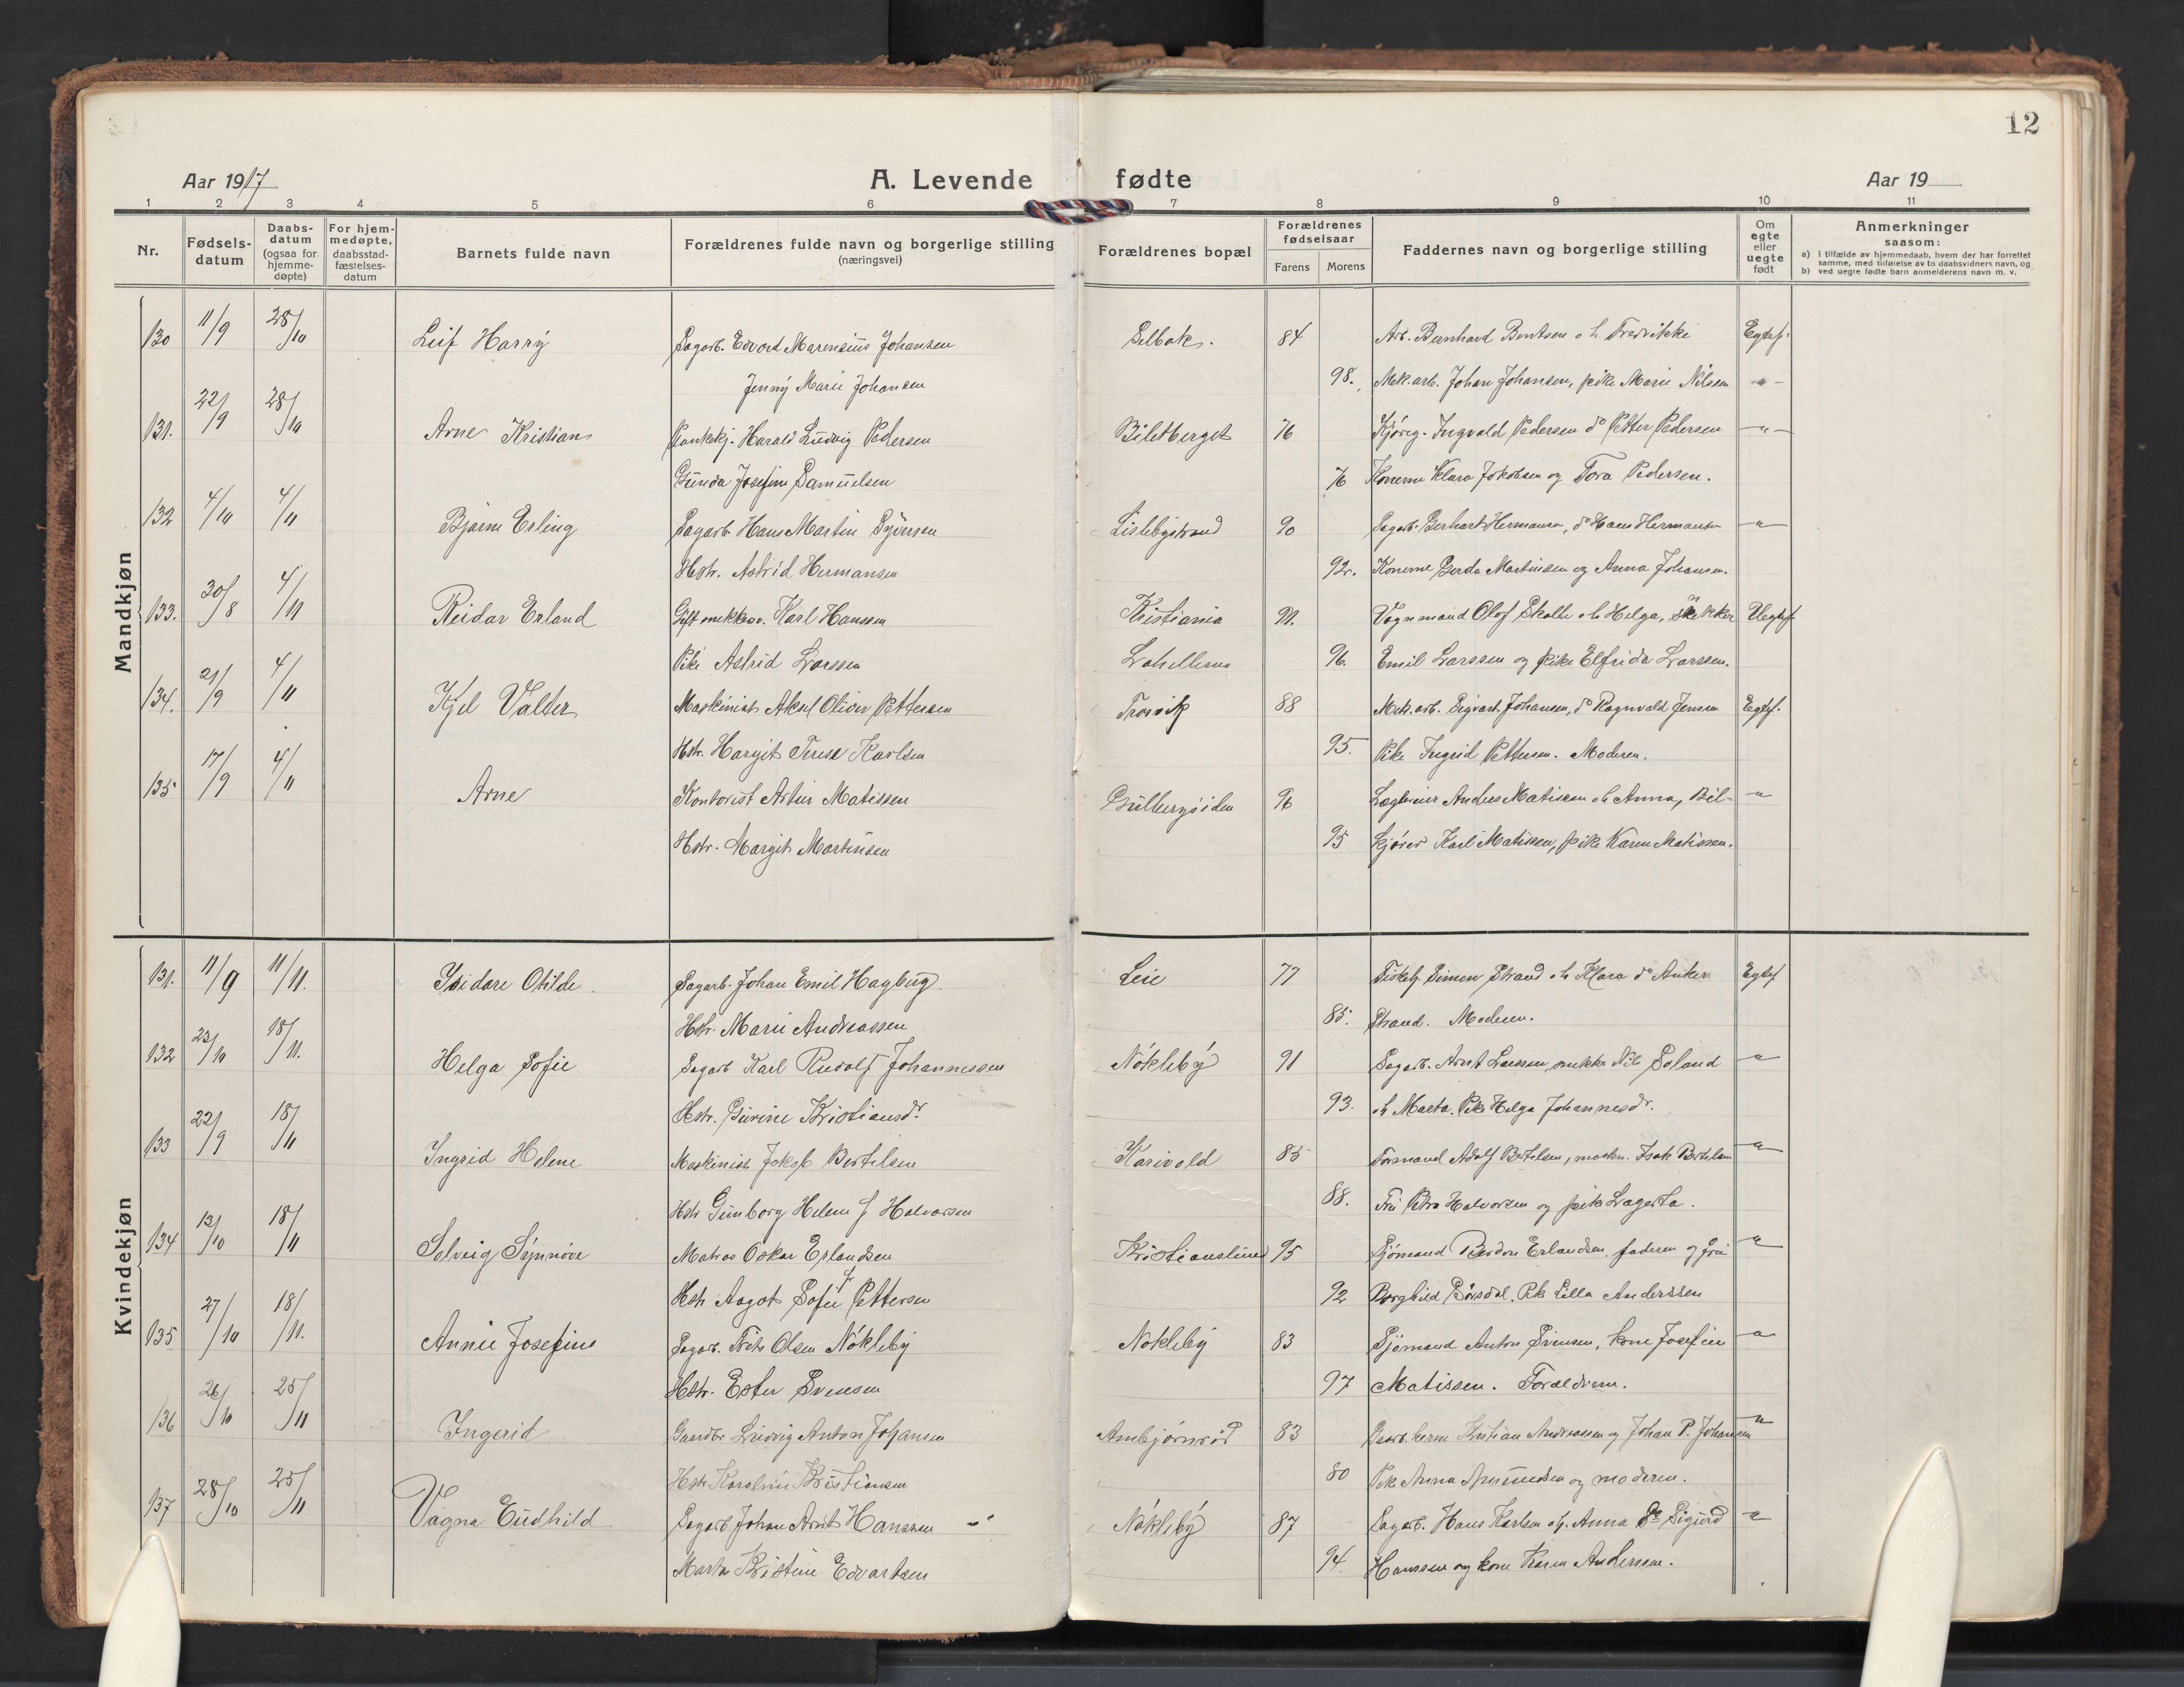 12
Aar 1917
A. Levende fødte
Aar 19
1 2 3 4 5 6 7 8 9 10 11
Nr.
Fødsels-datum
Daabs-datum (ogsaa for hjemme-døpte)
For hjem-medøpte, daabsstad-fæstelses-datum
Barnets fulde navn
Forældrenes fulde navn og borgerlige stilling (næringsvei)
Forældrenes bopæl
Forældrenes fødselsaar
Farens Morens
Faddernes navn og borgerlige stilling
Om egte eller uegte født
Anmerkninger saasom:
a) i tilfælde av hjemmedaab, hvem der har forrettet samme, med tilføielse av to daabsvidners navn, og
b) ved uegte fødte barn anmelderens navn m. v.
Mandkjøn
130 11/9 28/10 Leif Harry Sagarb. Edvard Marensius Johansen Selbak. 84 Arb. Bernhard Bentsen o h. Fredrikke Egtef.
Jenny Marie Johansen 98. Mek. arb. Johan Johansen, pike Marie Nilsen -"-
131. 22/9 28/10 Arne Kristian Plankekj. Harald Ludvig Pedersen Biletberget 76 Kjøreg. Ingvald Pedersen do Petter Pedersen -"-
Gunda Josefine Samuelsen 76 Konerne Klara Jakobsen og Tora Pedersen.
132 4/10 4/11 Bjarne Erling Sagarb. Hans Martin Syversen Lislebystrand 90 Sagarb. Gerhart Hermansen, do Hans Hermansen "
Hstr. Astrid Hermansen 92. Konerne Gerda Martinsen og Anna Johansen.
133. 30/8 4/11 Reidar Erland Gift snekkersv. Karl Hanssen Kristiania 91. Vognmand Olof Skolle o h Helga, snekker Uegtef.
Pike Astrid Larssen Lahellemo 96. Emil Larssen og pike Elfrida Larssen.
134. 21/9 4/11 Kjel Valter Maskinist Aksel Oliver Pettersen Trosvik 88 Mek. arb. Sigvart Johansen, do Ragnvald Jensen Egtef.
Hstr. Hargit Teresa Karlsen 95. Pike Ingrid Pettersen. Moderen.
135 17/9 4/11 Arne Kontorist Artur Matissen Gullbergsiden 96 Anders Matissen o h Anna, Bil- "
Hstr. Margit Martinsen 95 kjører Karl Matissen, pike Karen Matissen.
Kvindekjøn
131. 11/9 11/11. Isidore Otilde. Sagarb. Johan Emil Hagbug. Leie 77 Fiskeh. Simon Strand o h Klara do Anker Egtef
Hstr. Marie Andreassen 85. Strand. Moderen.
132 23/10 18/11. Helga Sofie Sagarb Karl Rudolf Johannessen Nøkleby 91 Sagarb. Arnt Larssen, snekker Nils Soland "
Hstr. Gurine Kristiansdr. 93. o h Marta. Pike Helga Johannesdr.
133 22/9 18/11 Ingrid Helene Maskinist Jakob Bertelsen Karivold 85 Formand Adolf Bertelsen, maskn. Isak Bertelsen "
Hstr Gunborg Helene f Halvorsen 88. Fru Petra Halvorsen og pike Lagerta.
134 13/10 18/11 Solveig Synnøve Matros Oskar Erlandsen Kristianslund 95 Sjømand Erlandsen, faderen og fru "
Hstr Aagot Sofie f Pettersen 92 Borghild Børsdal. Pike Lilla Anderssen
135 27/10 18/11. Annie Josefine Sagarb. Frits Olsen Nøkleby Nøkleby 83 Sjømand Anton Svensen, kone Josefine "
Hstr. Ester Svensen 97 Matissen. Forældrene.
136 26/10 25/11 Ingerid Gaardbr Ludvig Anton Johansen Ambjørnrød 83 Gaarb. herm Kristian Andreassen og Johan P. Johansen "
Hstr Karoline Kristiansen 80 Pike Anna Amundsen og moderen.
137 28/10 25/11 Vagna Eudhild Sagarb Johan Arnt Hanssen Nøkleby 87 Sagarb. Hans Karlsen o h. Anna Sigurd "
Marta Kristine Edvartsen 94. Hanssen og kone Karen Anderssen.